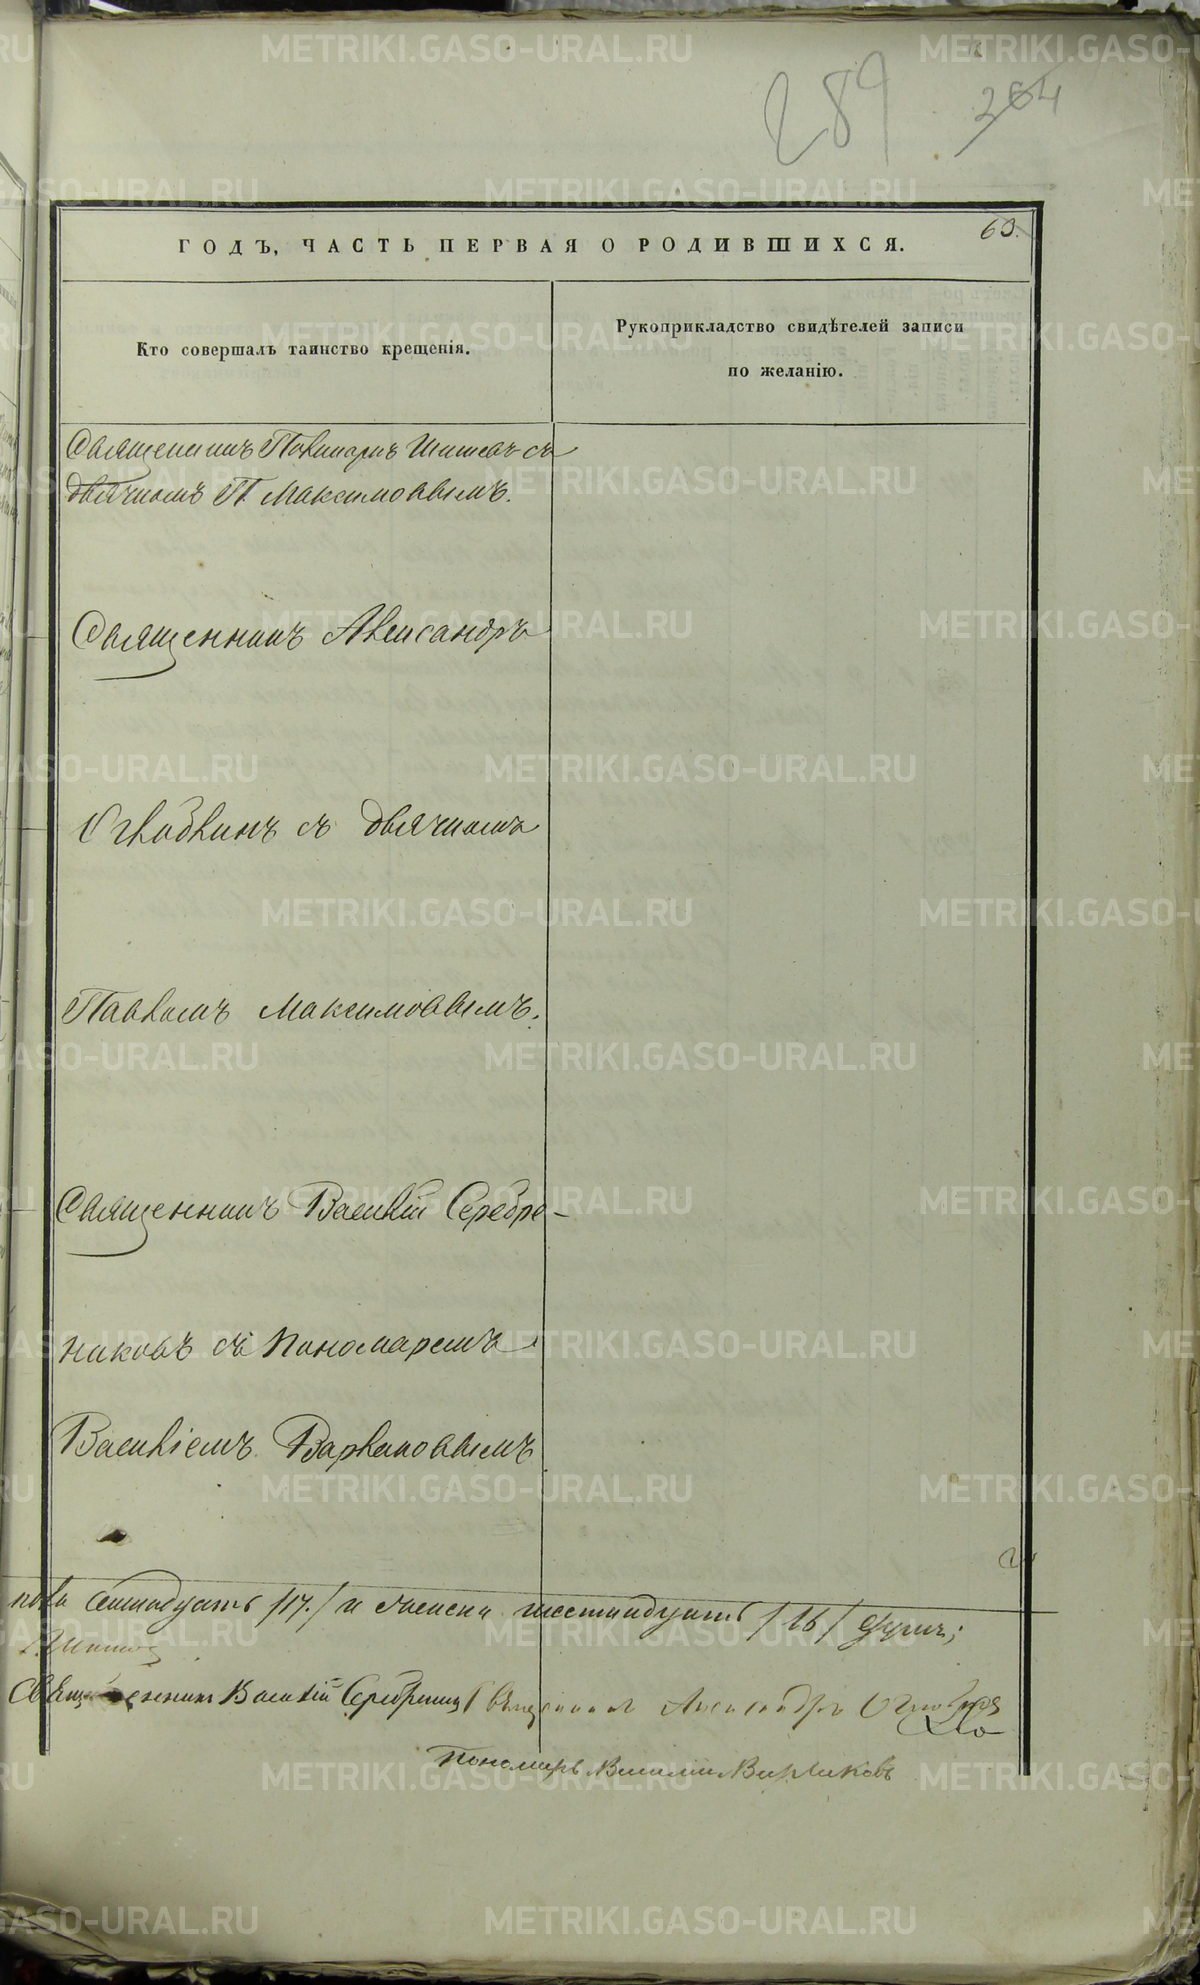 289
264
63.
ГОДЪ, ЧАСТЬ ПЕРВАЯ О РОДИВШИХСЯ.
Кто совершалъ таинство крещенія.
Рукоприкладство свидѣтелей записи
по желанію.
Священникъ Поликарпъ Шишевъ съ
дьячкомъ П. Максимовымъ.
Священникъ Александръ
Оглоблинъ съ дьячкомъ
Павломъ Максимовымъ.
Священникъ Василій Серебре-
никовъ съ Пономаремъ
Василіемъ Варлаковымъ
пола семнадцать /17./ и женска шестнадцать /16/ душъ;
Священникъ Василій Серебреник Священникъ Александръ Оглоблинъ
Пономарь Василій Варлаковъ
METRIKI.GASO-URAL.RU